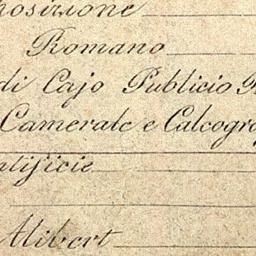 posizione
Romano
di Cajo Publicio
Camerale e Calcogra
ntificie
Alibert